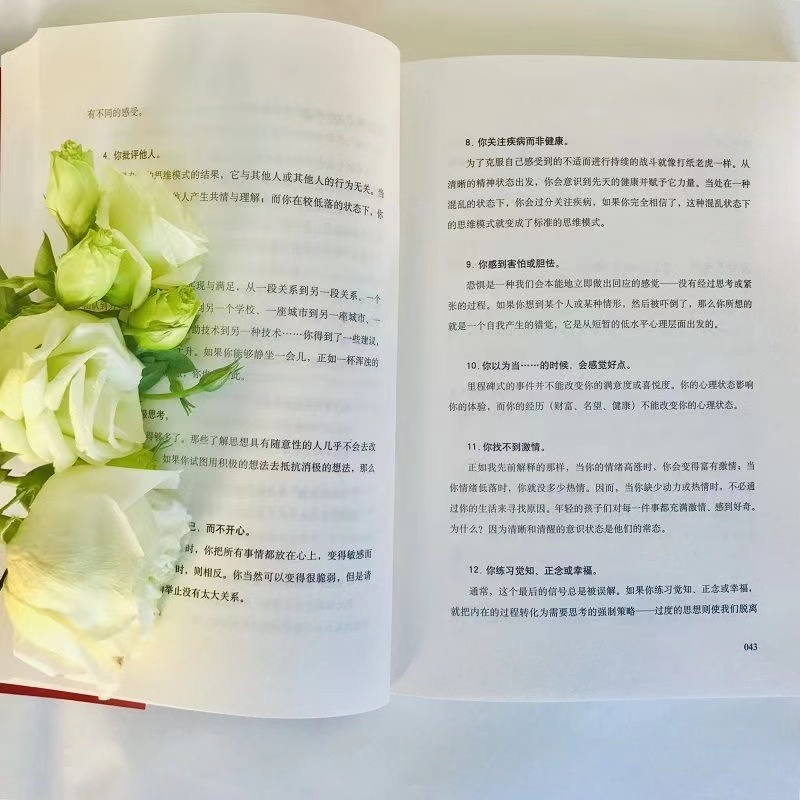 有不同的感受。
4. 你批评他人。
的思维模式的结果，它与其他人或其他人的行为无关。当
他人产生共情与理解；而你在较低落的状态下，你
现与满足，从一段关系到另一段关系、一个
到另一个学校、一座城市到另一座城市、一
助技术到另一种技术……你得到了一些建议，
升。如果你能够静坐一会儿，正如一杯浑浊的
你也 此。
思考。
得够多了。那些了解思想具有随意性的人几乎不会去改
如果你试图用积极的想法去抵抗消极的想法，那么
己，而不开心。
时，你把所有事情都放在心上，变得敏感而
时，则相反。你当然可以变得很脆弱，但是请
举止没有太大关系。
8. 你关注疾病而非健康。
为了克服自己感受到的不适而进行持续的战斗就像打纸老虎一样。从
清晰的精神状态出发，你会意识到先天的健康并赋予它力量。当处在一种
混乱的状态下，你会过分关注疾病，如果你完全相信了，这种混乱状态下
的思维模式就变成了标准的思维模式。
9. 你感到害怕或胆怯。
恐惧是一种我们会本能地立即做出回应的感觉——没有经过思考或紧
张的过程。如果你想到某个人或某种情形，然后被吓倒了，那么你所想的
就是一个自我产生的错觉，它是从短暂的低水平心理层面出发的。
10. 你以为当……的时候，会感觉好点。
里程碑式的事件并不能改变你的满意度或喜悦度。你的心理状态影响
你的体验，而你的经历（财富、名望、健康）不能改变你的心理状态。
11. 你找不到激情。
正如我先前解释的那样，当你的情绪高涨时，你会变得富有激情；当
你情绪低落时，你就没多少热情。因而，当你缺少动力或热情时，不必通
过你的生活来寻找原因。年轻的孩子们对每一件事都充满激情、感到好奇。
为什么？因为清晰和清醒的意识状态是他们的常态。
12. 你练习觉知、正念或幸福。
通常，这个最后的信号总是被误解。如果你练习觉知、正念或幸福，
就把内在的过程转化为需要思考的强制策略——过度的思想则使我们脱离
043